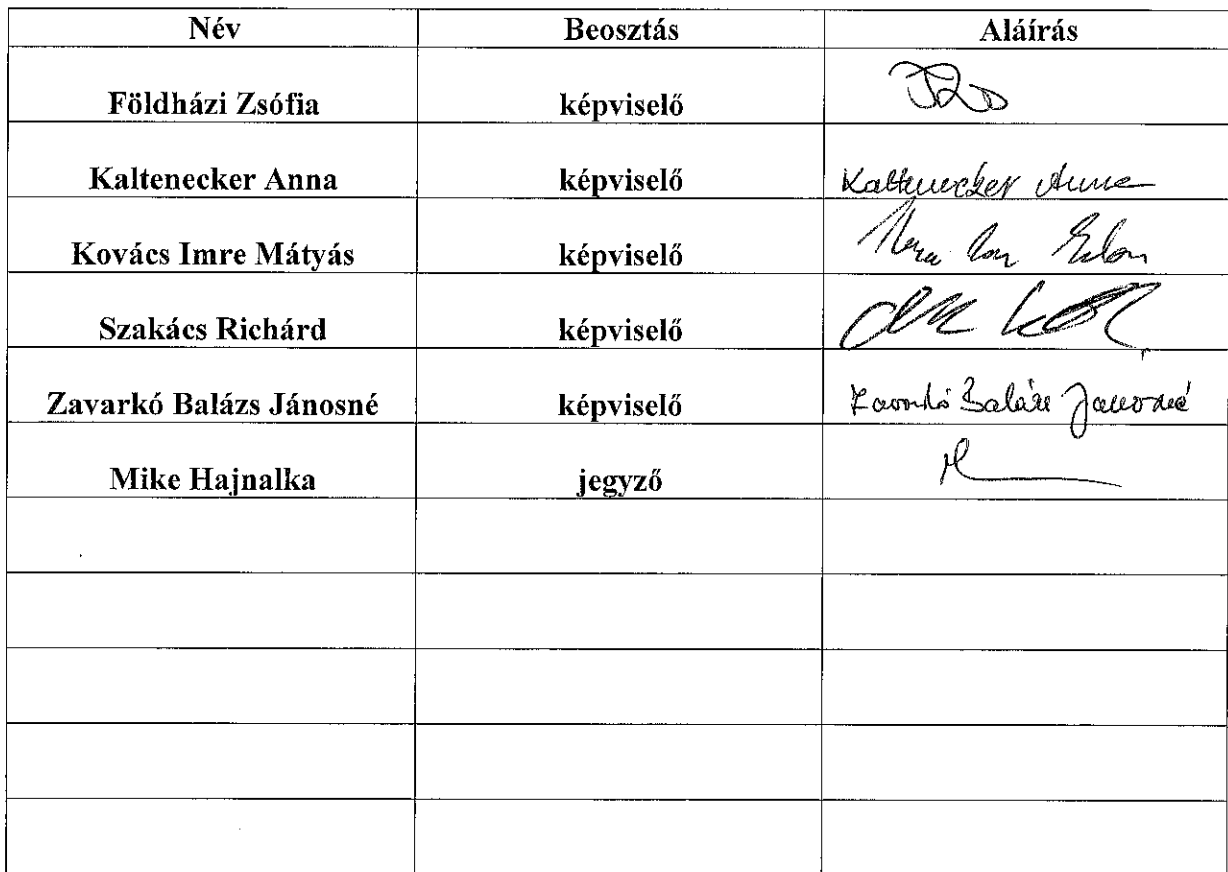 Név Beosztás Aláírás
Földházi Zsófia képviselő
Kaltenecker Anna képviselő Kaltenecker Anna
Kovács Imre Mátyás képviselő
Szakács Richárd képviselő
Zavarkó Balázs Jánosné képviselő Zavarkó Balázs Jánosné
Mike Hajnalka jegyző